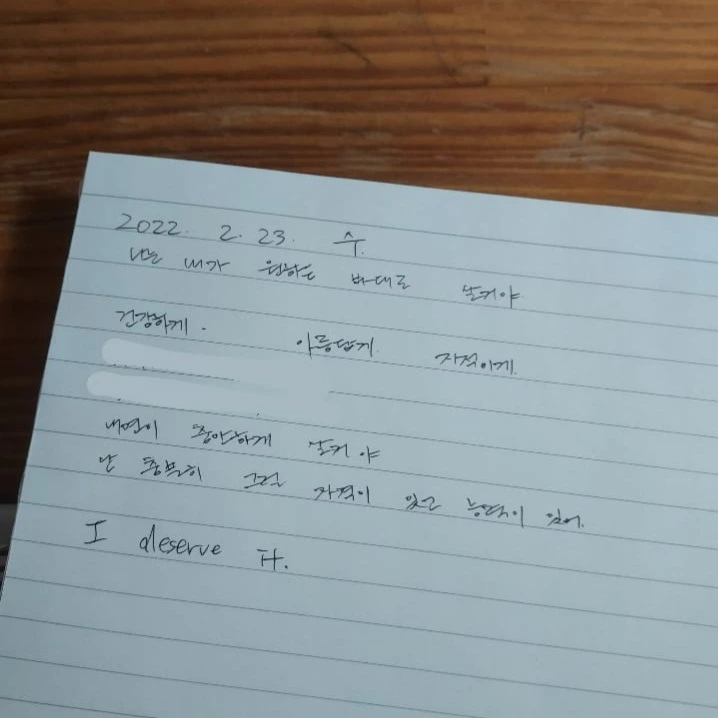 2022. 2. 23. 수.
나는 내가 원하는 바대로 살거야
건강하게. 아름답게. 지적이게.
내면이 충만하게 살거야
난 충분히 그럴 자격이 있고 능력이 있어.
I deserve it.